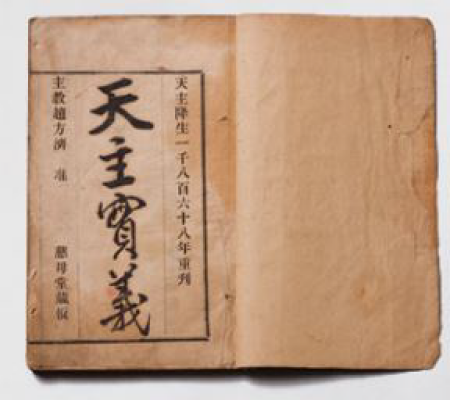 天主降生一千八百六十八年重刋
天主實義
主教趙方濟 准 慈母堂藏板